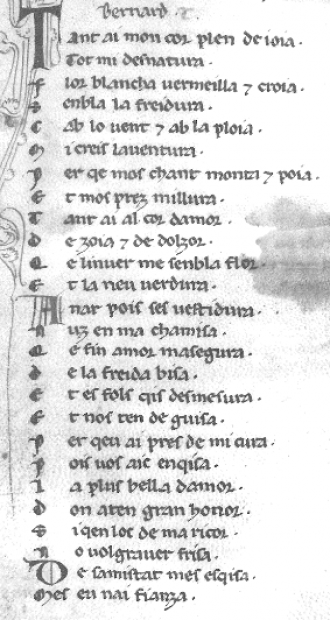 Bernard. T.
Tant ai mon cor plen de ioia.
Tot mi desnatura.
flor blancha vermeilla ⁊ croia.
Senbla la freidura.
C Ab lo uent ⁊ ab la ploia.
M i creis lauentura.
P er qe mos chant monta ⁊ poia.
E t mos prez millura.
T ant ai al cor damor.
D e zoia ⁊ de dolzor.
Q e liuuer me senbla flor.
E t la neu uerdura.
Anar pois ses uestidura.
N uz en ma chamisa.
Q e fin amor masegura.
D e la freida bisa.
E t es fols qis desmesura.
E t nos ten de guisa.
P er qeu ai pres de mi cura.
P ois uos aic enqisa.
L a plus bella damor.
D on aten gran honor.
S i qen loc de ma ricor.
N o uolgrauer frisa.
De samistat mes esqisa.
Mes eu nai fianza.